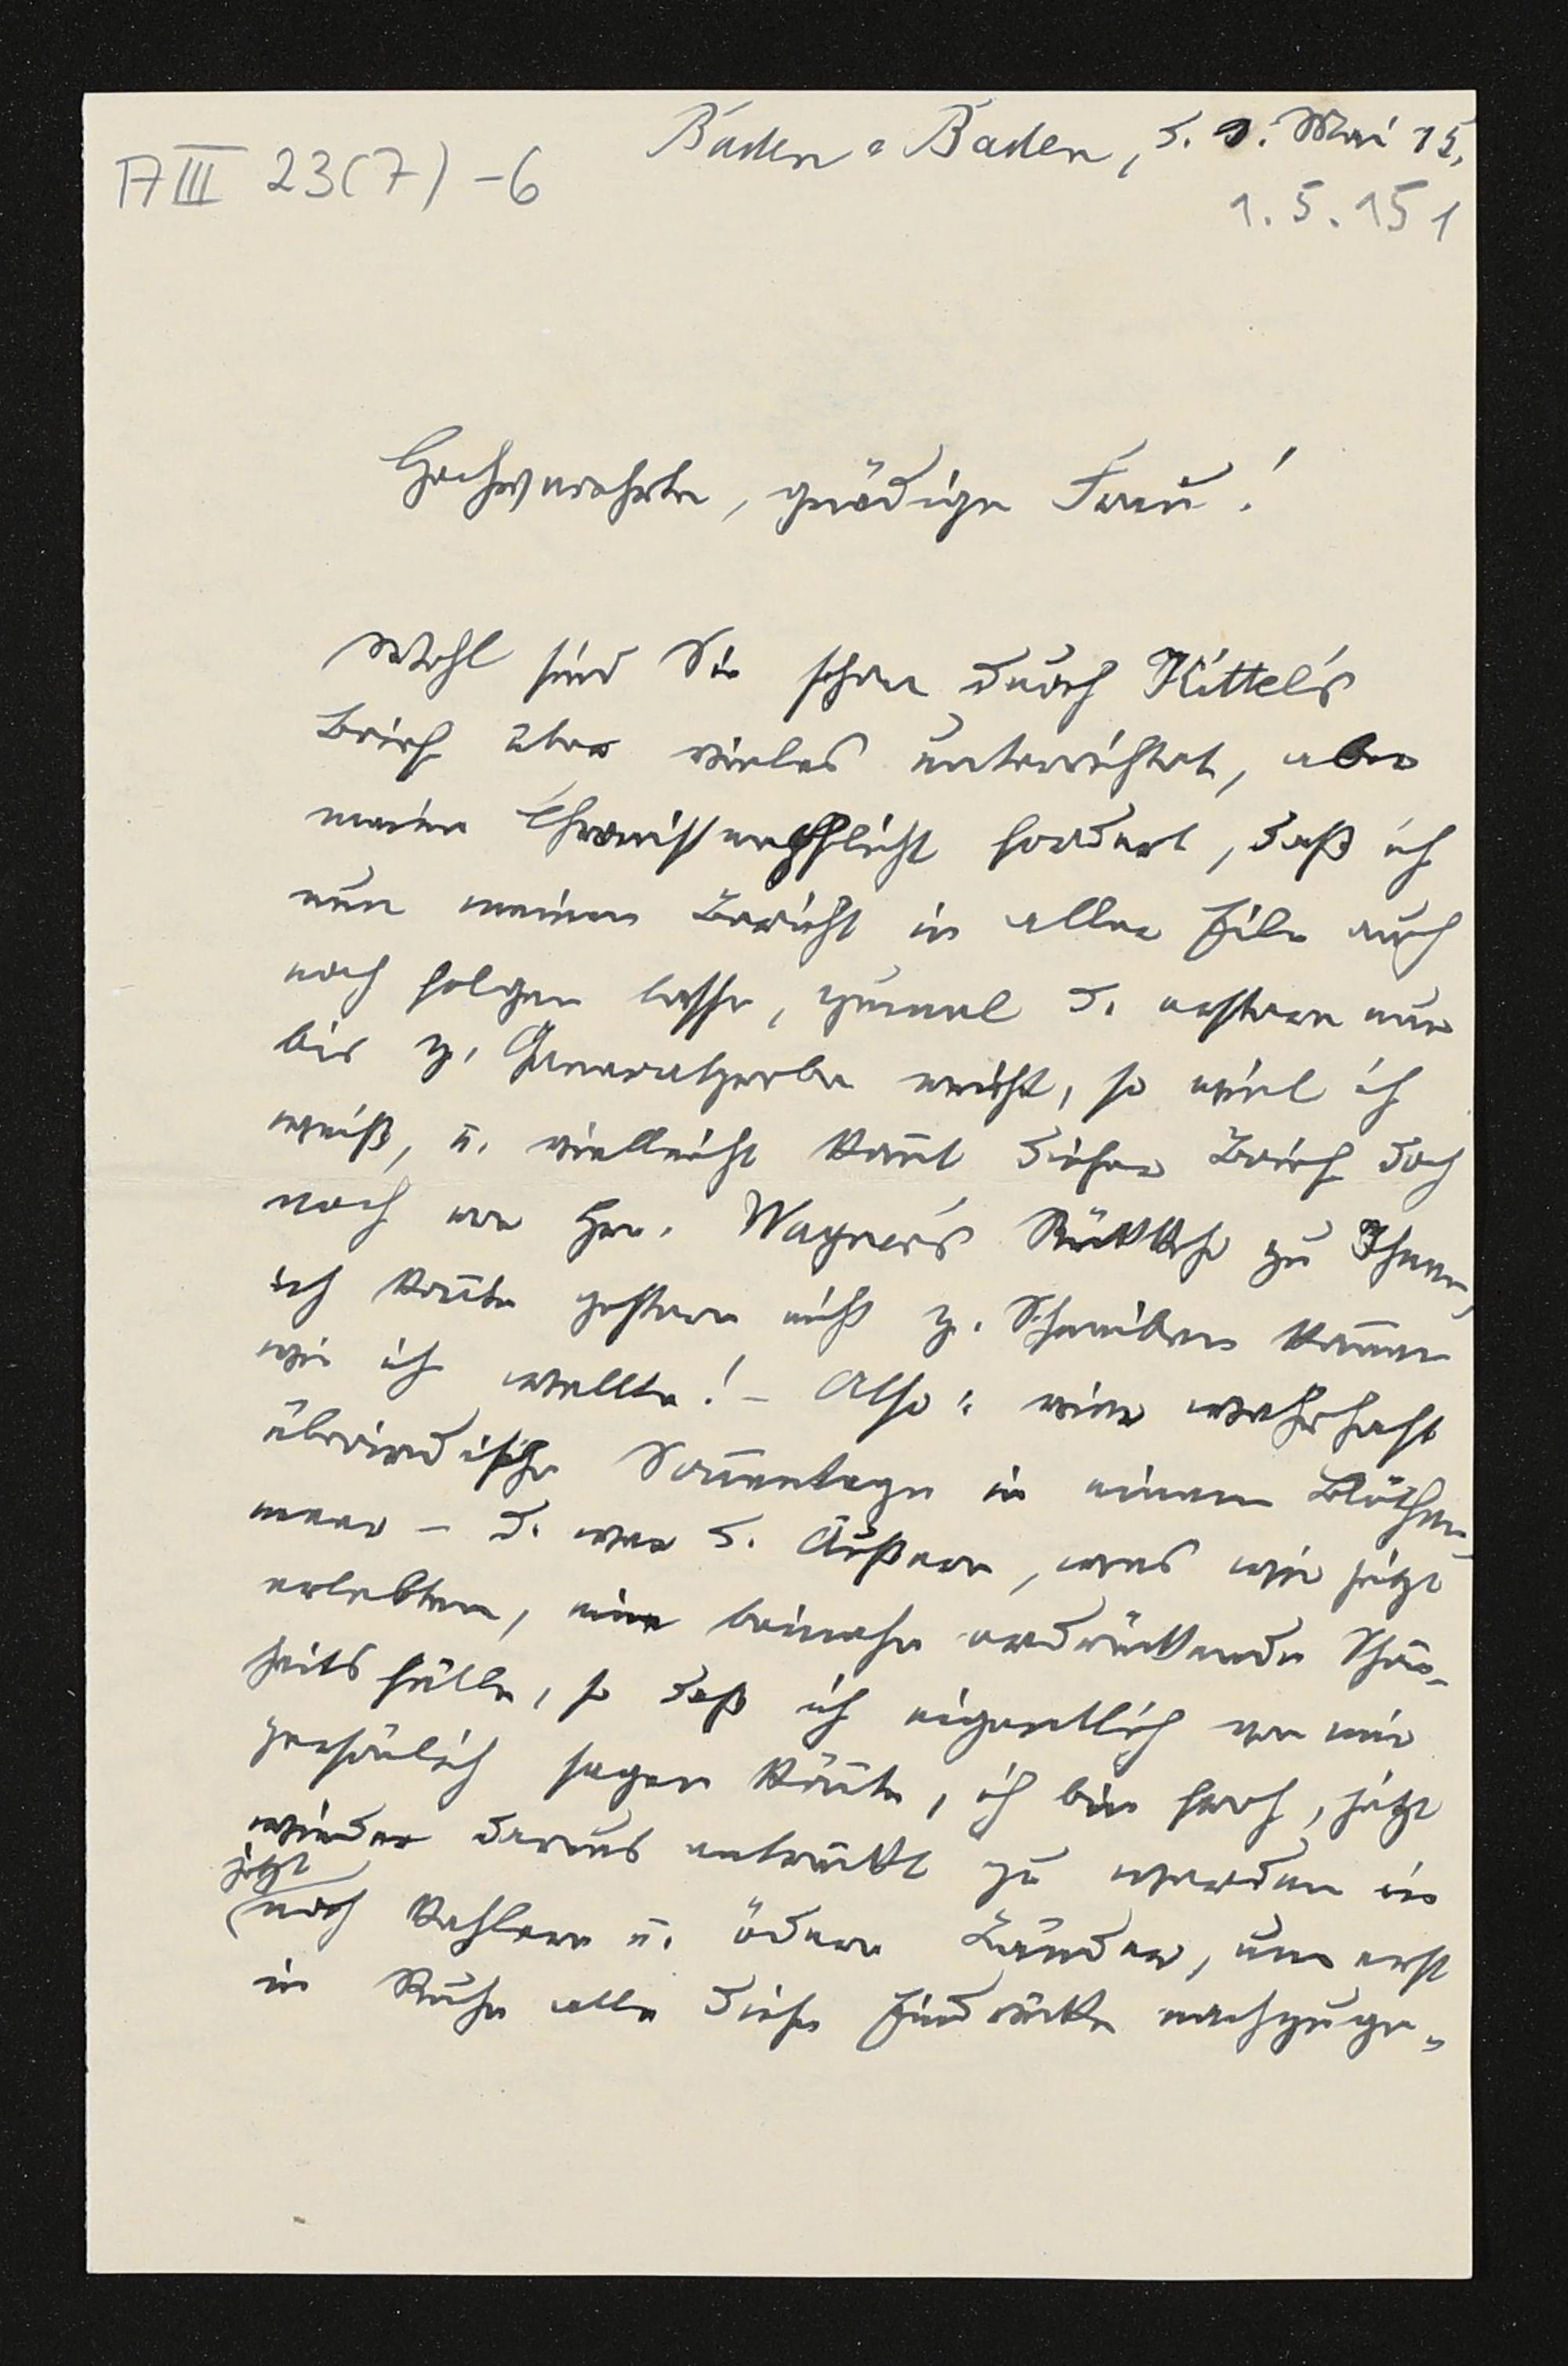 A III 23(7) - 6
Baden=Baden, d. 1. Mai 15.
1. 5. 15 1
Hochverehrte, gnädige Frau!
Wohl sind Sie schon durch Kittel's
Brief über vieles unterrichtet, aber
meine Chronistenpflicht fordert, daß ich
nun meinen Bericht in aller Eile auch
noch folgen lasse, zumal d. erstere nur
bis z. Generalprobe reicht, so viel ich
weiß, u. vielleicht kom̄t dieser Brief doch
noch vor Hrn. Wagner's Rückkehr zu Ihnen,
ich kon̄te gestern nicht z. Schreiben kom̄en
wie ich wollte! – Also: eine wahrhaft
überirdische Son̄entage in einem Blüthen-
meer – d. war d. Äußere, was wir jetzt
erlebten, eine beinahe erdrückende Schön-
heitsfülle, so daß ich eigentlich von mir
persönlich sagen kön̄te, ich bin froh, jetzt
wieder daraus entrückt zu werden in
jetzt
noch kahlere u. ödere Länder, um erst
in Ruhe alle diese Eindrücke nachzuge-